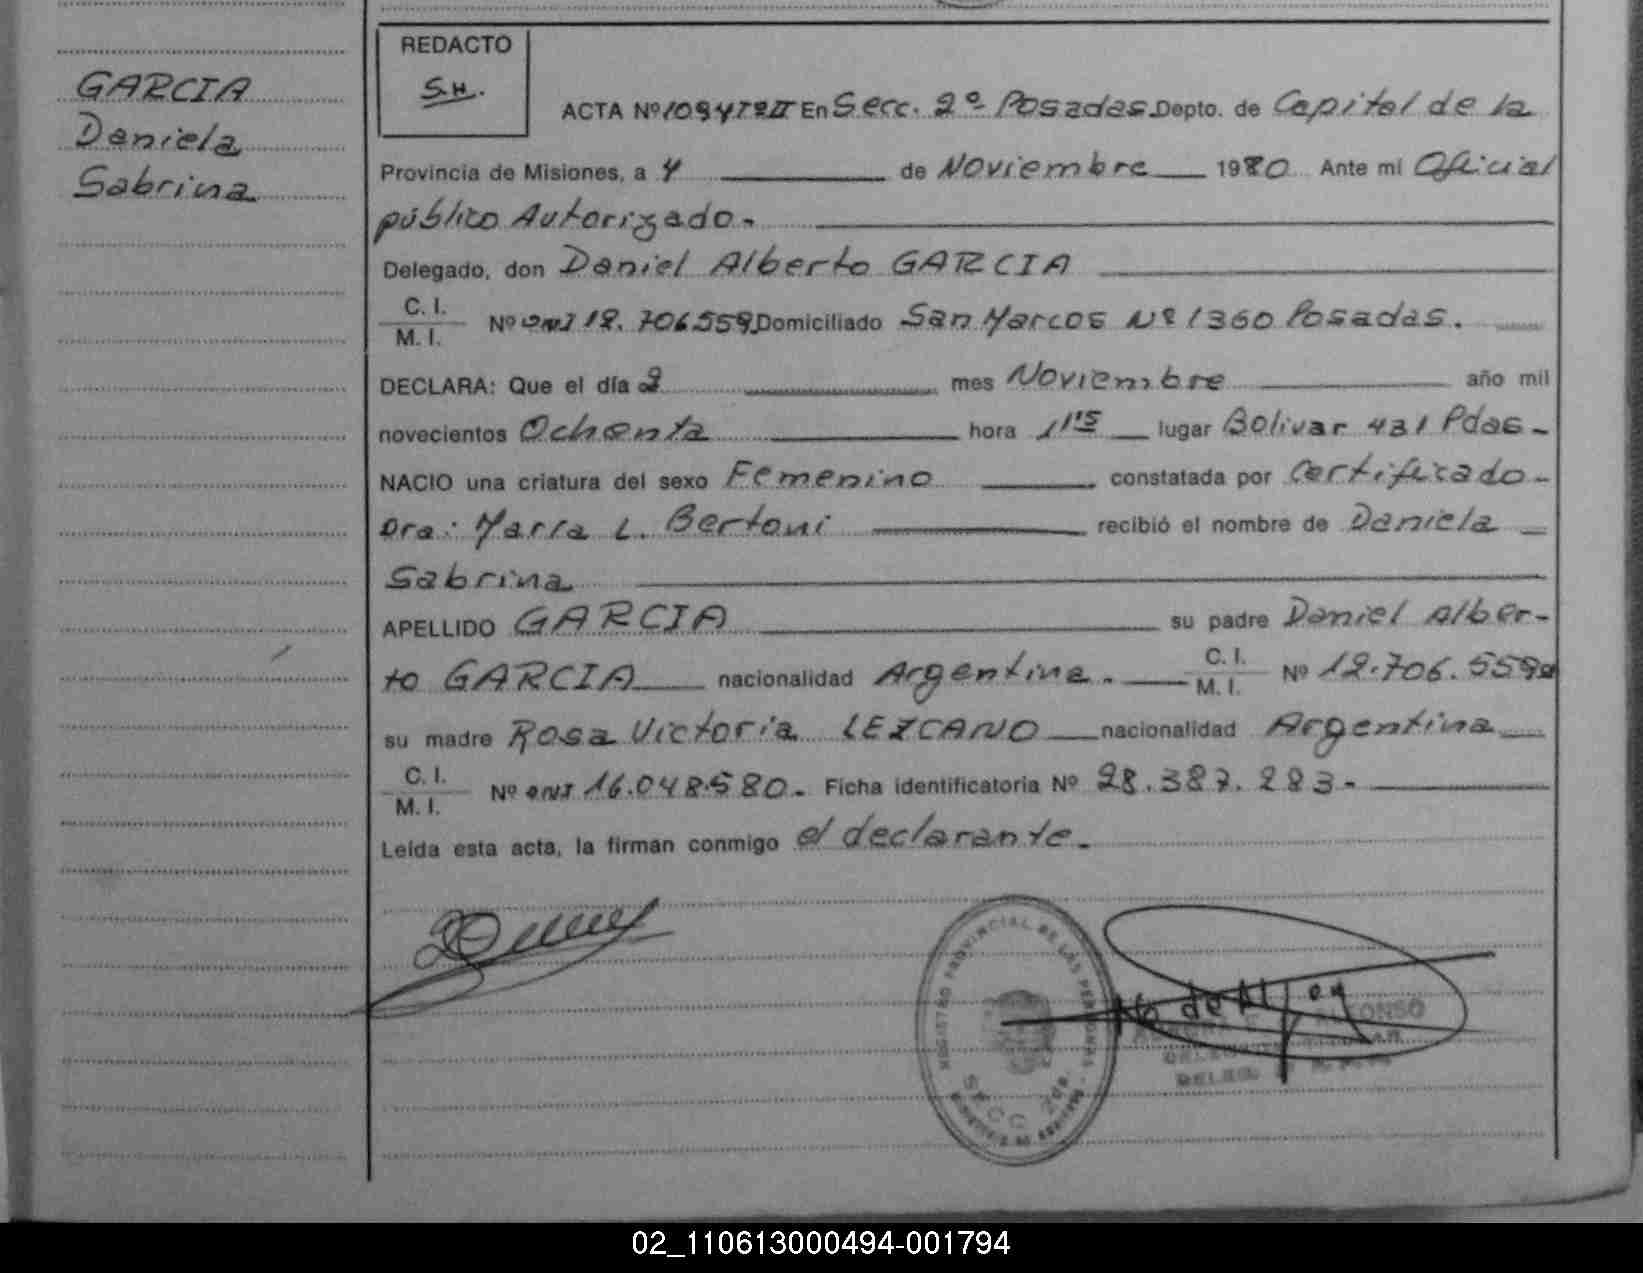 GARCIA
Daniela
Sabrina
REDACTO
S.H.
ACTA Nº 1094 T2II En Secc. 2º Posadas Depto. de Capital de la
Provincia de Misiones, a 4 de Noviembre 1980 Ante mi Oficial
público Autorizado.
Delegado, don Daniel Alberto GARCIA
C. I.
M. I. Nº DNI 12.706.559 Domiciliado San Marcos Nº 1360 Posadas.
DECLARA: Que el día 2 mes Noviembre año mil
novecientos Ochenta hora 1,15 lugar Bolivar 431 Pdas.
NACIO una criatura del sexo Femenino constatada por Certificado
Dra: Maria L. Bertoni recibió el nombre de Daniela
Sabrina
APELLIDO GARCIA su padre Daniel Alber-
to GARCIA nacionalidad Argentina. C. I. M. I. Nº 12.706.559
su madre Rosa Victoria LEZCANO nacionalidad Argentina
C. I.
M. I. Nº DNI 16.048.580. Ficha identificatoria Nº 28.387.283.-
Leída esta acta, la firman conmigo el declarante.
REGISTRO PROVINCIAL DE LAS PERSONAS
SECC 2da.
ALFONSO
02_110613000494-001794